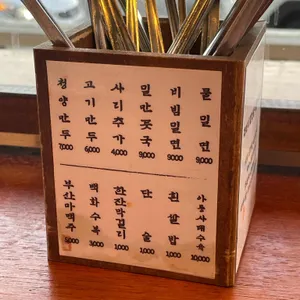 청양만두
7,000
고기만두
6,000
사리추가
4,000
밀만둣국
9,000
비빔밀면
9,000
물밀면
9,000
백화수복
3,000
한잔막걸리
1,000
단술
1,000
흰쌀밥
1,000
아롱사태수육
10,000